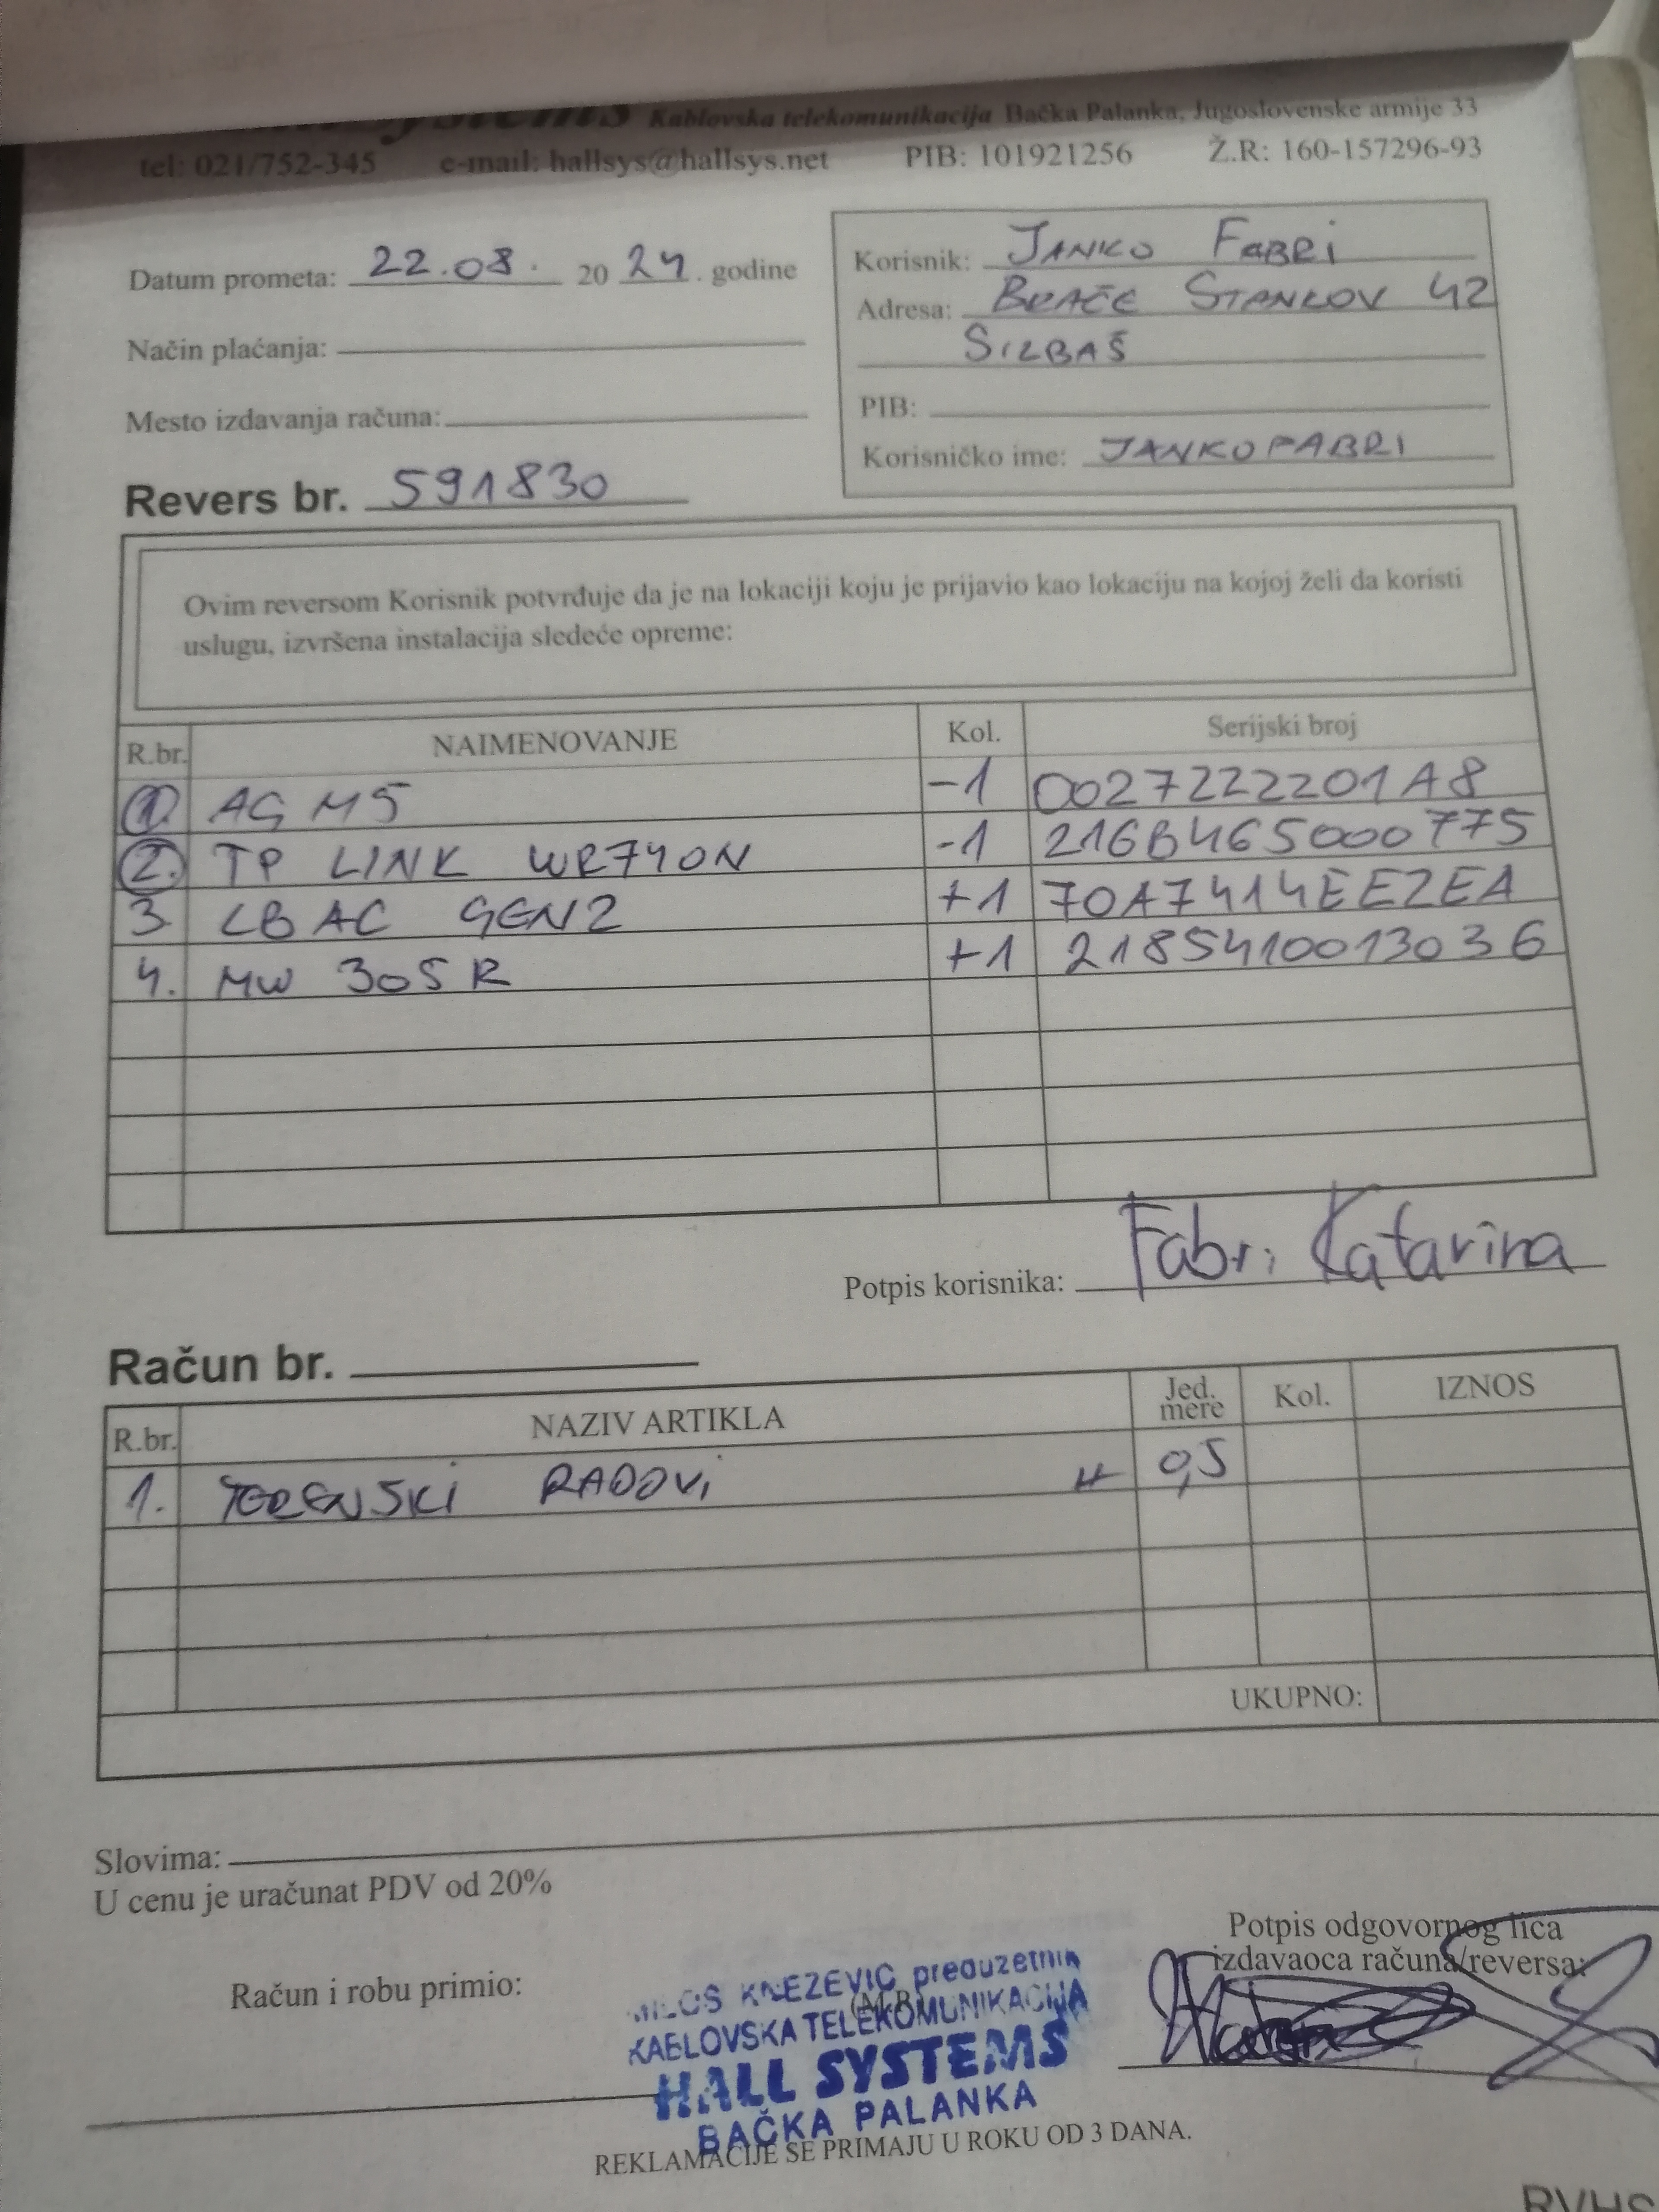 Systems Kablovska telekomunikacija Bačka Palanka, Jugoslovenske armije 33
tel: 021/752-345 e-mail: hallsys@hallsys.net PIB: 101921256 Ž.R: 160-157296-93
Datum prometa: 22.08. 20 24. godine
Način plaćanja:
Mesto izdavanja računa:
Revers br. 591830
Korisnik: JANKO FABRI
Adresa: BRAĆE STANKOV 42
SILBAŠ
PIB:
Korisničko ime: JANKOFABRI
Ovim reversom Korisnik potvrđuje da je na lokaciji koju je prijavio kao lokaciju na kojoj želi da koristi
uslugu, izvršena instalacija sledeće opreme:
R.br. NAIMENOVANJE Kol. Serijski broj
1. AG M5 -1 0027222201A8
2. TP LINK WR740N -1 216B465000775
3. LB AC GEN2 +1 70A7414EEZEA
4. MW 305R +1 2185410013036
Potpis korisnika: Fabri Katarina
Račun br.
R.br. NAZIV ARTIKLA Jed. mere Kol. IZNOS
1. TERENSKI RADOVI H 0,5
UKUPNO:
Slovima:
U cenu je uračunat PDV od 20%
Račun i robu primio:
(M.P.)
Potpis odgovornog lica
izdavaoca računa/reversa:
MILOŠ KNEZEVIC preduzetnik
KABLOVSKA TELEKOMUNIKACIJA
HALL SYSTEMS
BAČKA PALANKA
REKLAMACIJE SE PRIMAJU U ROKU OD 3 DANA.